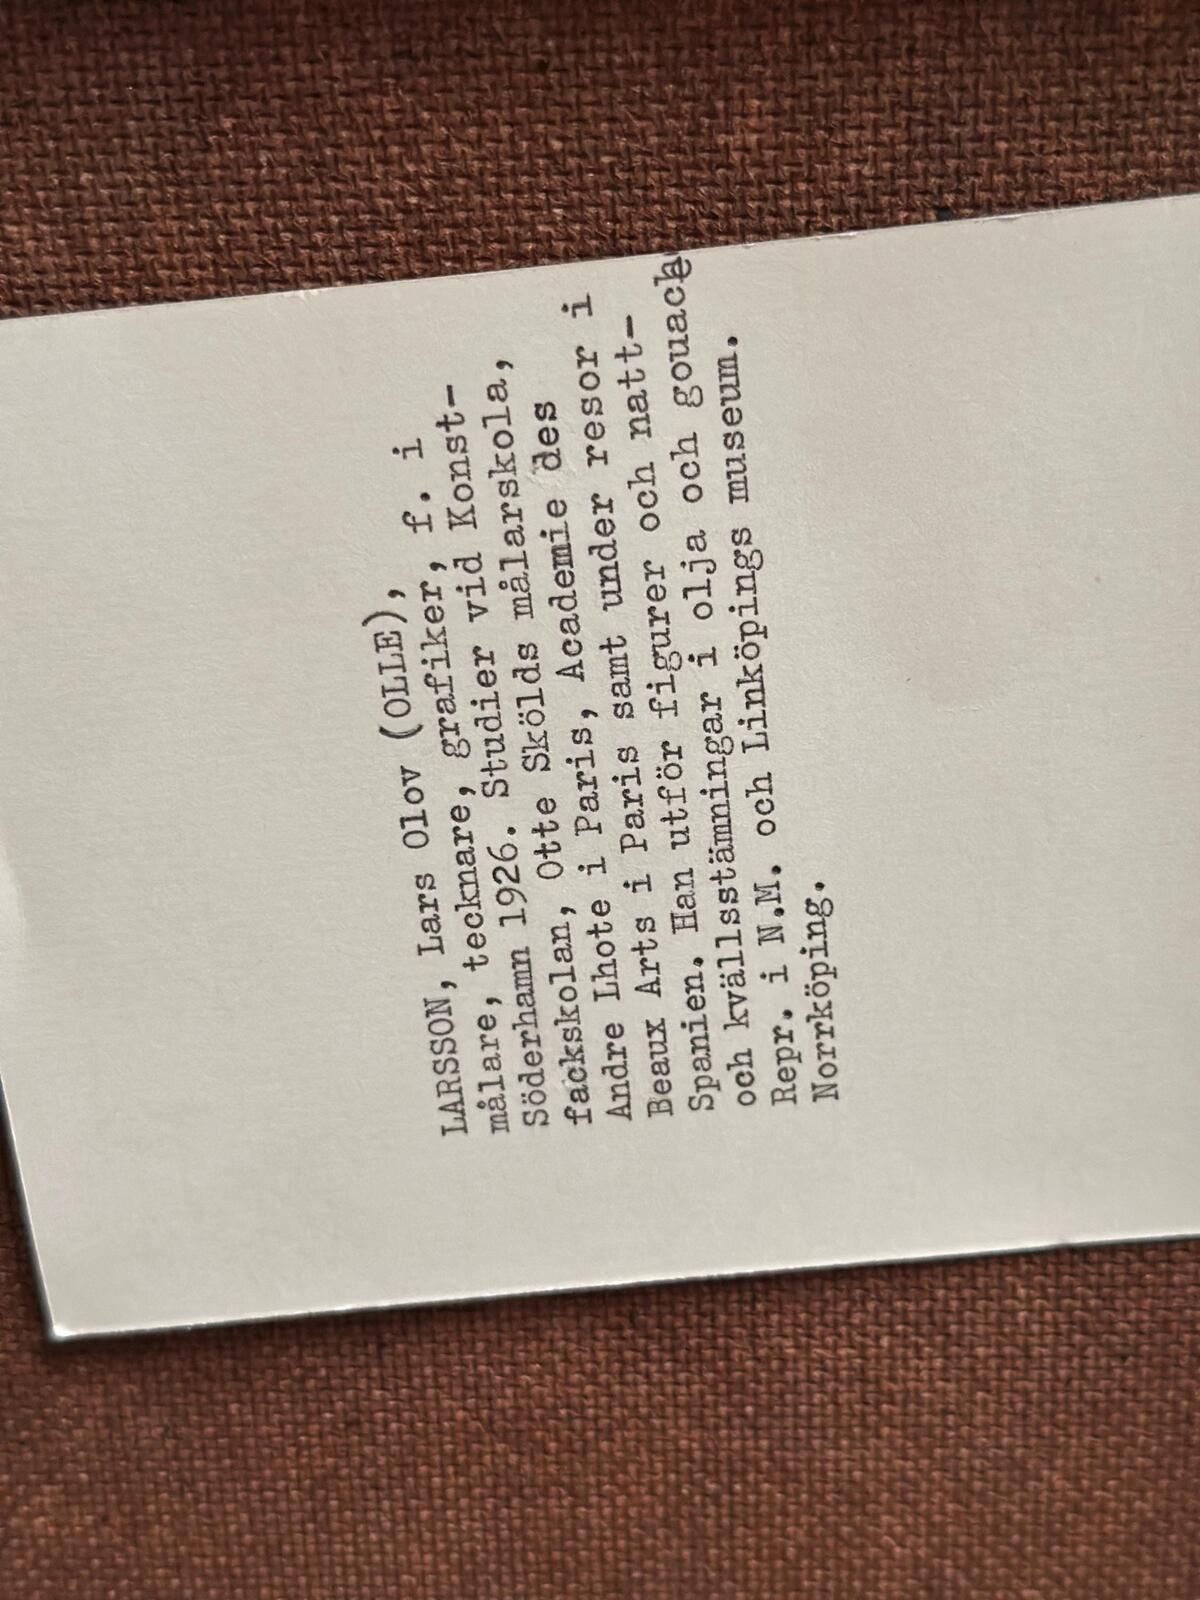 LARSSON, Lars Olov (OLLE),
målare, tecknare, grafiker, f. i
Söderhamn 1926. Studier vid Konst-
fackskolan, Otte Skölds målarskola,
Andre Lhote i Paris, Academie des
Beaux Arts i Paris samt under resor i
Spanien. Han utför figurer och natt-
och kvällsstämningar i olja och gouache
Repr. i N.M. och Linköpings museum.
Norrköping.